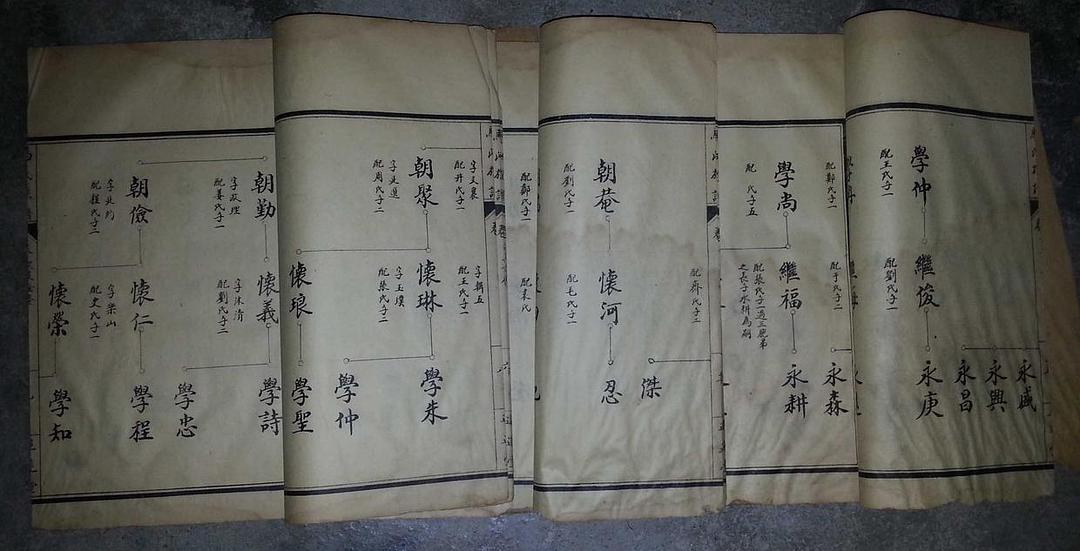 永盛
永興
永昌
學仲
配王氏子一
繼俊
配劉氏子一
永庚
配鄭氏子一
配于氏子一
永森
學尚
配 氏子五
繼福
配張氏子一過三胞弟
之長子永耕為嗣
永耕
配齊氏子三
傑
朝菴
配劉氏子一
懷河
配毛氏子一
忍
配鄭氏子一
配袁氏
字文襄
配井氏子一
字輯五
配王氏子一
朝聚
字文運
配周氏子二
懷琳
字玉璞
配張氏子二
學朱
學仲
懷琅
學聖
朝勤
字政理
配姜氏子一
懷義
字沐清
配劉氏子二
學詩
學忠
朝儉
字北約
配程氏子二
懷仁
字樂山
配史氏子一
學程
懷榮
學知